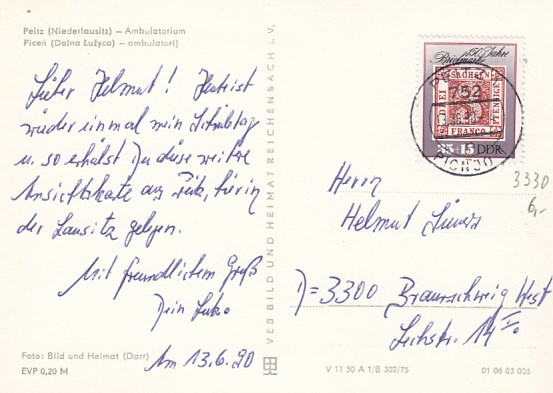 Peitz (Niederlausitz) — Ambulatorium
Piceń (Dolna Łužyca) — ambulatorij
Lieber Helmut! Heut ist
wieder einmal mein
u. so erhältst Du diese weitere
Ansichtskarte aus hier in
der Lausitz gelegen.
Mit freundlichem Gruß
Dein
Am 13.6.90
Foto: Bild und Heimat (Darr)
EVP 0,20 M
VEB BILD UND HEIMAT REICHENBACH I. V.
150 Jahre
Briefmarke
SACHSEN
DREI
PFENNIGE
FRANCO
35+15 DDR
752
3330
6,-
Herrn
Helmut
D=3300 Braunschweig West
V 11 50 A 1/B 302/75
01 06 03 005